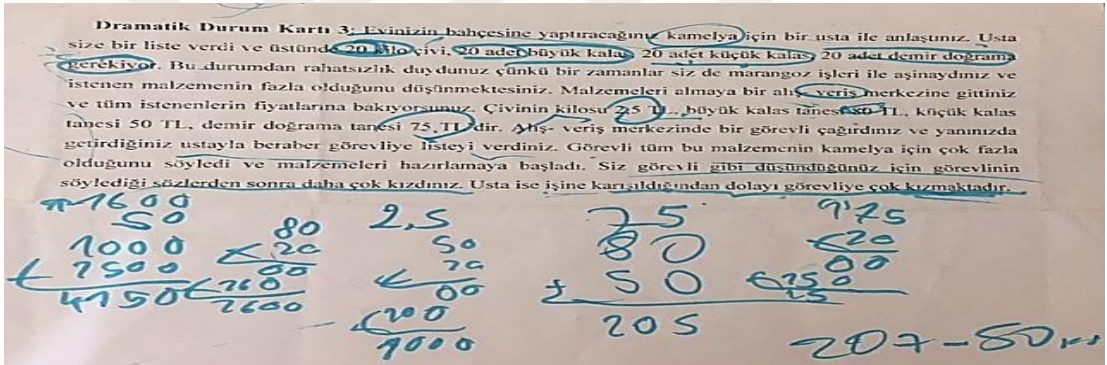 Dramatik Durum Kartı 3: Evinizin bahçesine yaptıracağınız kamelya için bir usta ile anlaştınız. Usta
size bir liste verdi ve üstünde 20 kilo çivi, 20 adet büyük kalas, 20 adet küçük kalas, 20 adet demir doğrama
gerekiyor. Bu durumdan rahatsızlık duydunuz çünkü bir zamanlar siz de marangoz işleri ile aşinaydınız ve
istenen malzemenin fazla olduğunu düşünmektesiniz. Malzemeleri almaya bir alış veriş merkezine gittiniz
ve tüm istenenlerin fiyatlarına bakıyorsunuz. Çivinin kilosu 2.5 TL., büyük kalas tanesi 80 TL, küçük kalas
tanesi 50 TL, demir doğrama tanesi 75 TL dir. Alış- veriş merkezinde bir görevli çağırdınız ve yanınızda
getirdiğiniz ustayla beraber görevliye listeyi verdiniz. Görevli tüm bu malzemenin kamelya için çok fazla
olduğunu söyledi ve malzemeleri hazırlamaya başladı. Siz görevli gibi düşündüğünüz için görevlinin
söylediği sözlerden sonra daha çok kızdınız. Usta ise işine karışıldığından dolayı görevliye çok kızmaktadır.
1600
50 80 2,5 75 75
1000 20 50 80 20
1500 00 20 + 50 00
4150 160 00 205 150
1600 100
1000 207-50